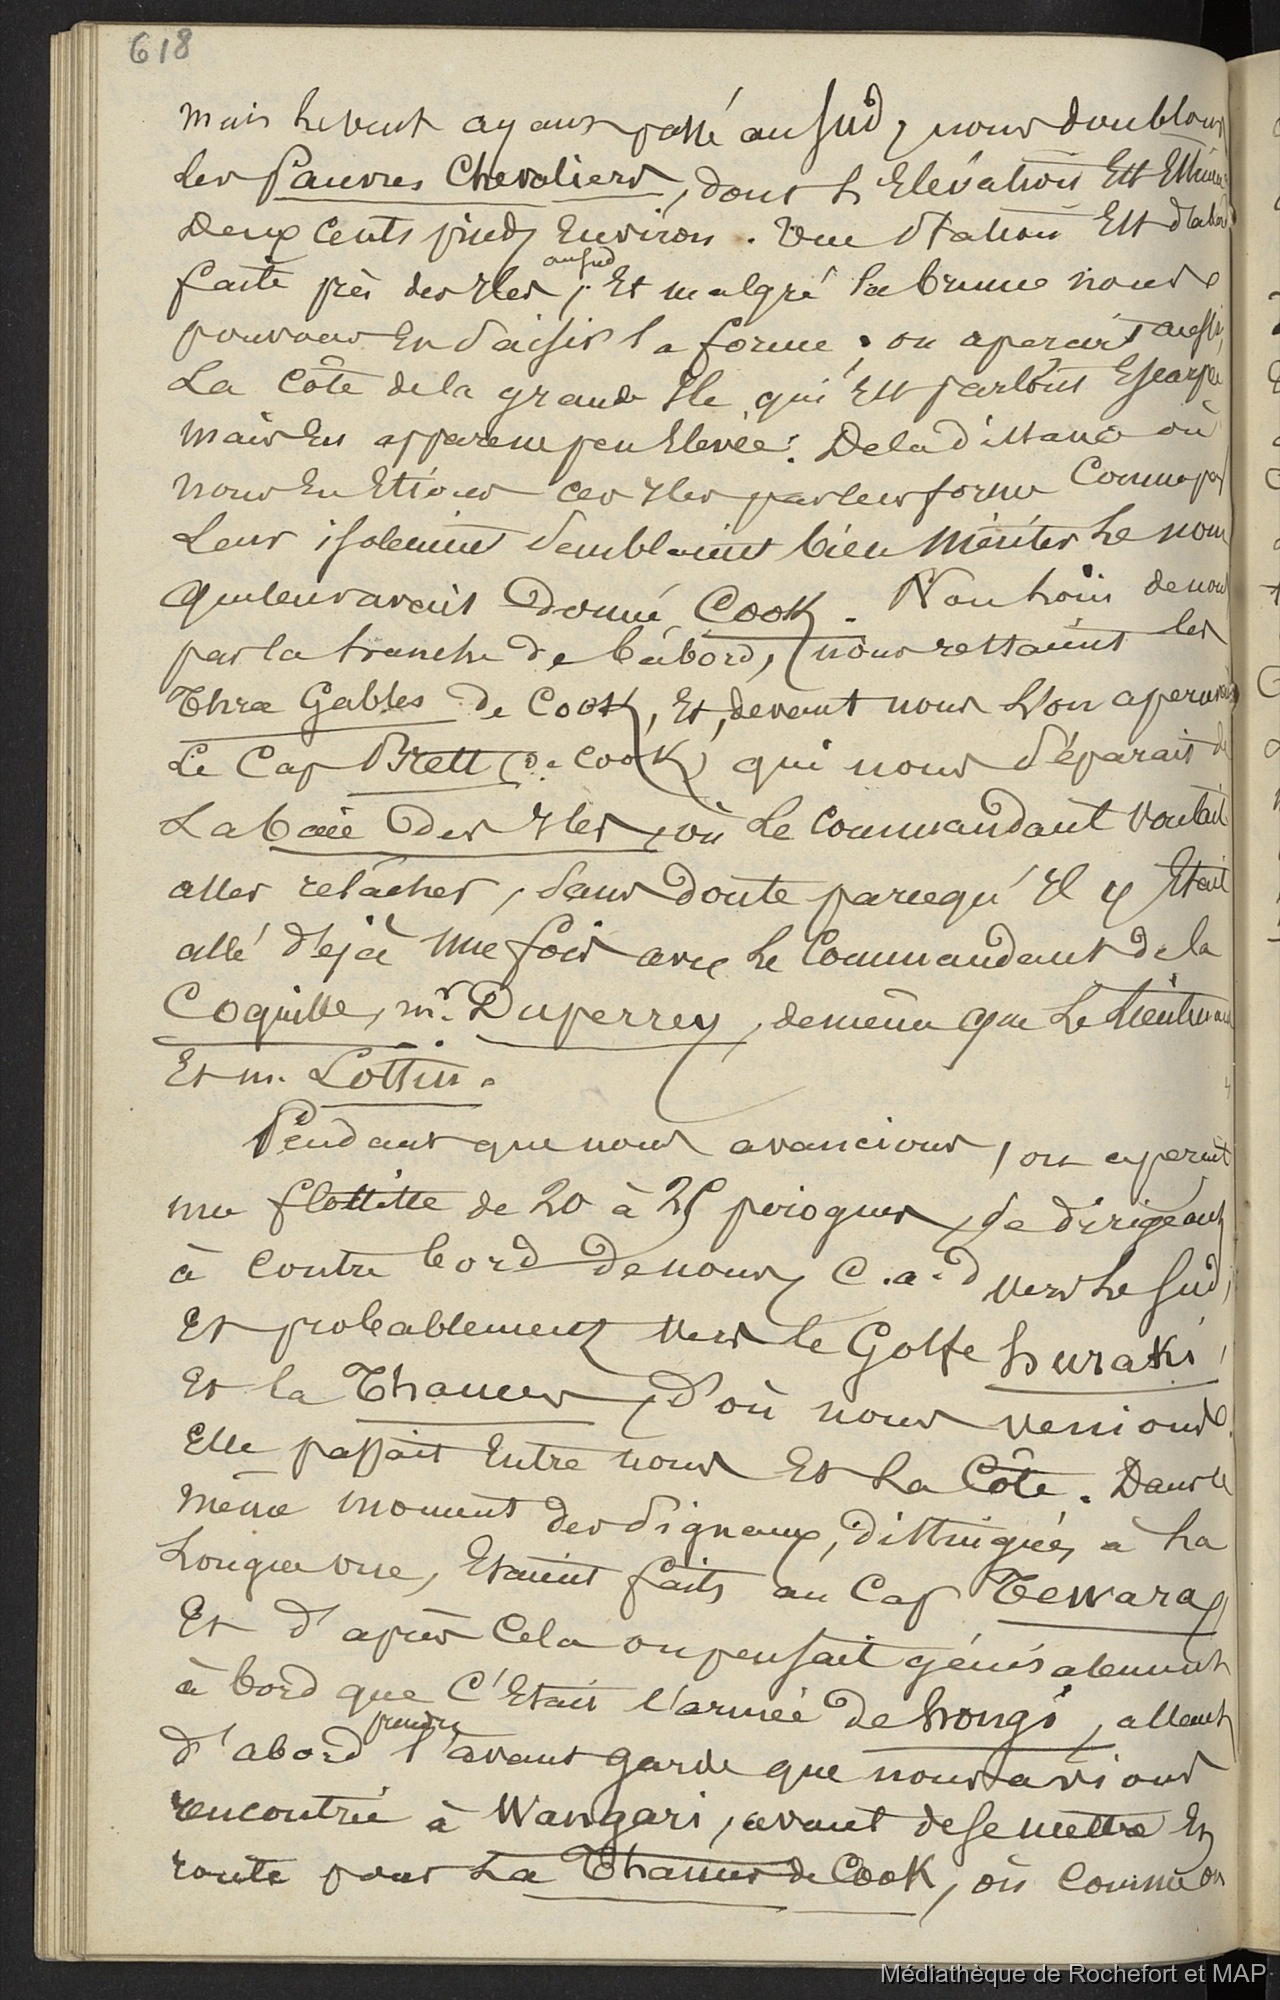 618
mais le vent ayant passé au sud, nous doublons
les Pauvres Chevaliers, dont l'Elévation Est Estimée
Deux cents pieds Environ. Une Station Est d'abord
au sud
faite près des Iles, Et malgré la brume nous
pouvons En Saisir la forme; on aperçoit aussi
La Côte de la grande Ile qui Est partout Escarpée
mais En apparence peu Elevée. De la distance où
nous En Etions ces Iles par leur forme Comme par
Leur isolement Semblaient bien Mériter Le nom
que leur avait Donné Cook. Non loin de nous
par la hanche de bâbord, nous restaient les
Three Gables de Cook, Et, devant nous L'on apercevait
Le Cap Brett (de Cook) qui nous Séparait de
La baie Des Iles, où Le Commandant voulait
aller relâcher, Sans Doute parcequ'Il y Etait
allé déjà Une fois avec Le Commandant de la
Coquille, mr. Duperrey, de même que Le Lieutenant
Et m. Lottin.
Pendant que nous avancions, on aperçut
une flottille de 20 à 25 pirogues, Se dirigeant
à contre bord de nous, C.a.d vers Le Sud,
Et probablement vers le Golfe huraki,
Et la Thames, D'où nous venions.
Elle passait Entre nous Et La Côte. Dans le
même moment des Signaux, distingués à La
Longue vue, Etaient faits au Cap Tewara,
Et d'après Cela on pensait généralement
à bord que C'Etait l'armée de hongi, allant
prendre
d'abord l'avant garde que nous avions
rencontrée à Wangari, avant de Se mettre En
route pour La Thames de Cook, où Comme on
Médiathèque de Rochefort et MAP